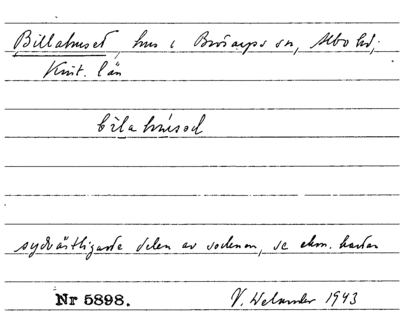 Billahuset, hus i Brösarps sn, Albo hd,
Krist. län
bilahúsed
sydvästligaste delen av socknen, se ekon. kartan
Nr 5898. V. Welander 1943